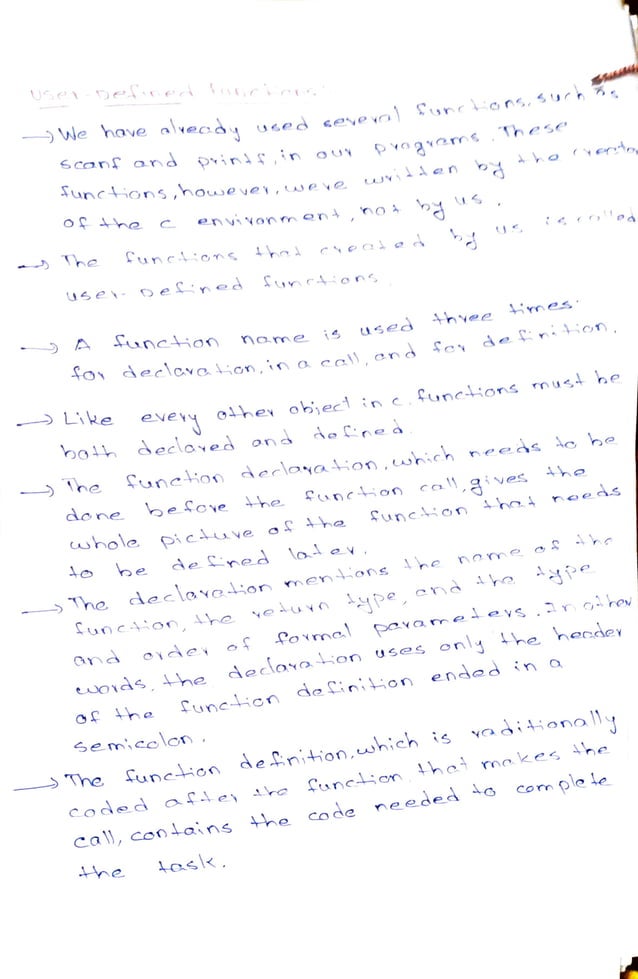 User-Defined functions:
→ We have already used several functions, such as
scanf and printf, in our programs. These
functions, however, were written by the creator
of the c environment, not by us.
→ The functions that created by us is called
user-Defined functions.
→ A function name is used three times:
for declaration, in a call, and for definition.
→ Like every other object in c. functions must be
both declared and defined.
→ The function declaration, which needs to be
done before the function call, gives the
whole picture of the function that needs
to be defined later.
→ The declaration mentions the name of the
function, the return type, and the type
and order of formal parameters. In other
words, the declaration uses only the header
of the function definition ended in a
semicolon.
→ The function definition, which is raditionally
coded after the function that makes the
call, contains the code needed to complete
the task.